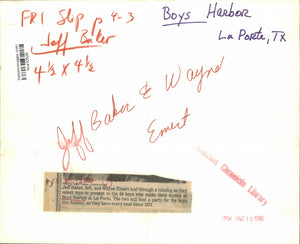 FRI Step p 4-3
Jeff Baker
4 1/2 X 4 1/2
Boys Harbor
La Porte, TX
Jeff Baker & Wayne
Ernert
Jeff Baker, left, and Wayne Ernert leaf through a catalog as they
select toys to present to the 46 boys who make their homes at
Boys Harbor in La Porte. The two will host a party for the boys
this Sunday, as they have every year since 1973.
Houston Chronicle Library